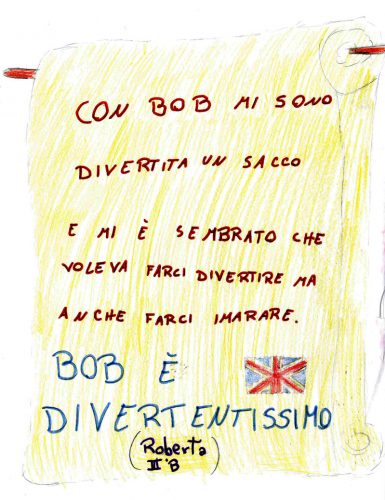 CON BOB MI SONO
DIVERTITA UN SACCO
E MI È SEMBRATO CHE
VOLEVA FARCI DIVERTIRE MA
ANCHE FARCI IMARARE.
BOB È
DIVERTENTISSIMO
(Roberta
II°B)